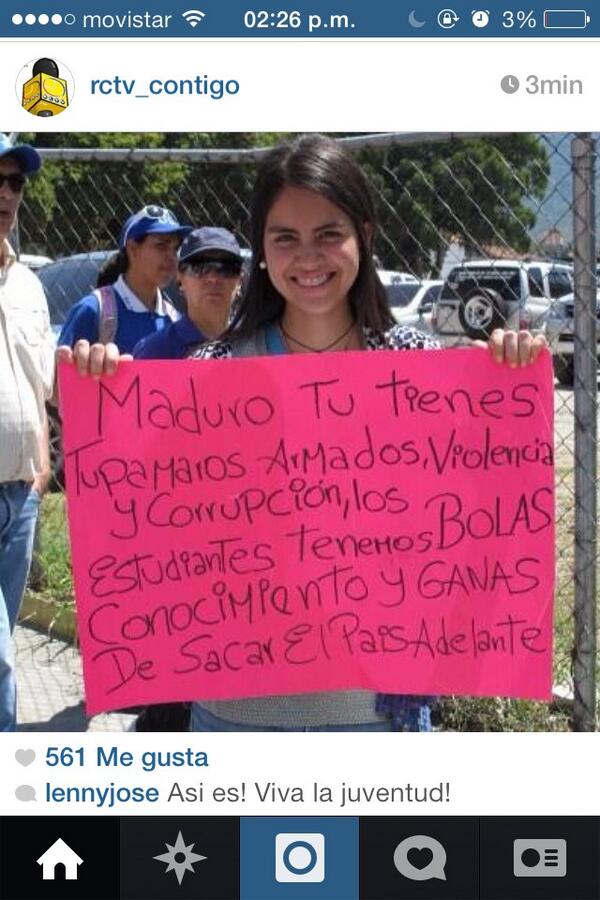 movistar 02:26 p.m. 3%
rctv_contigo 3min
Maduro Tu tienes
Tupamaros Armados, Violencia
y Corrupción, los
Estudiantes tenemos BOLAS
Conocimiento y GANAS
De Sacar El Pais Adelante
561 Me gusta
lennyjose Asi es! Viva la juventud!